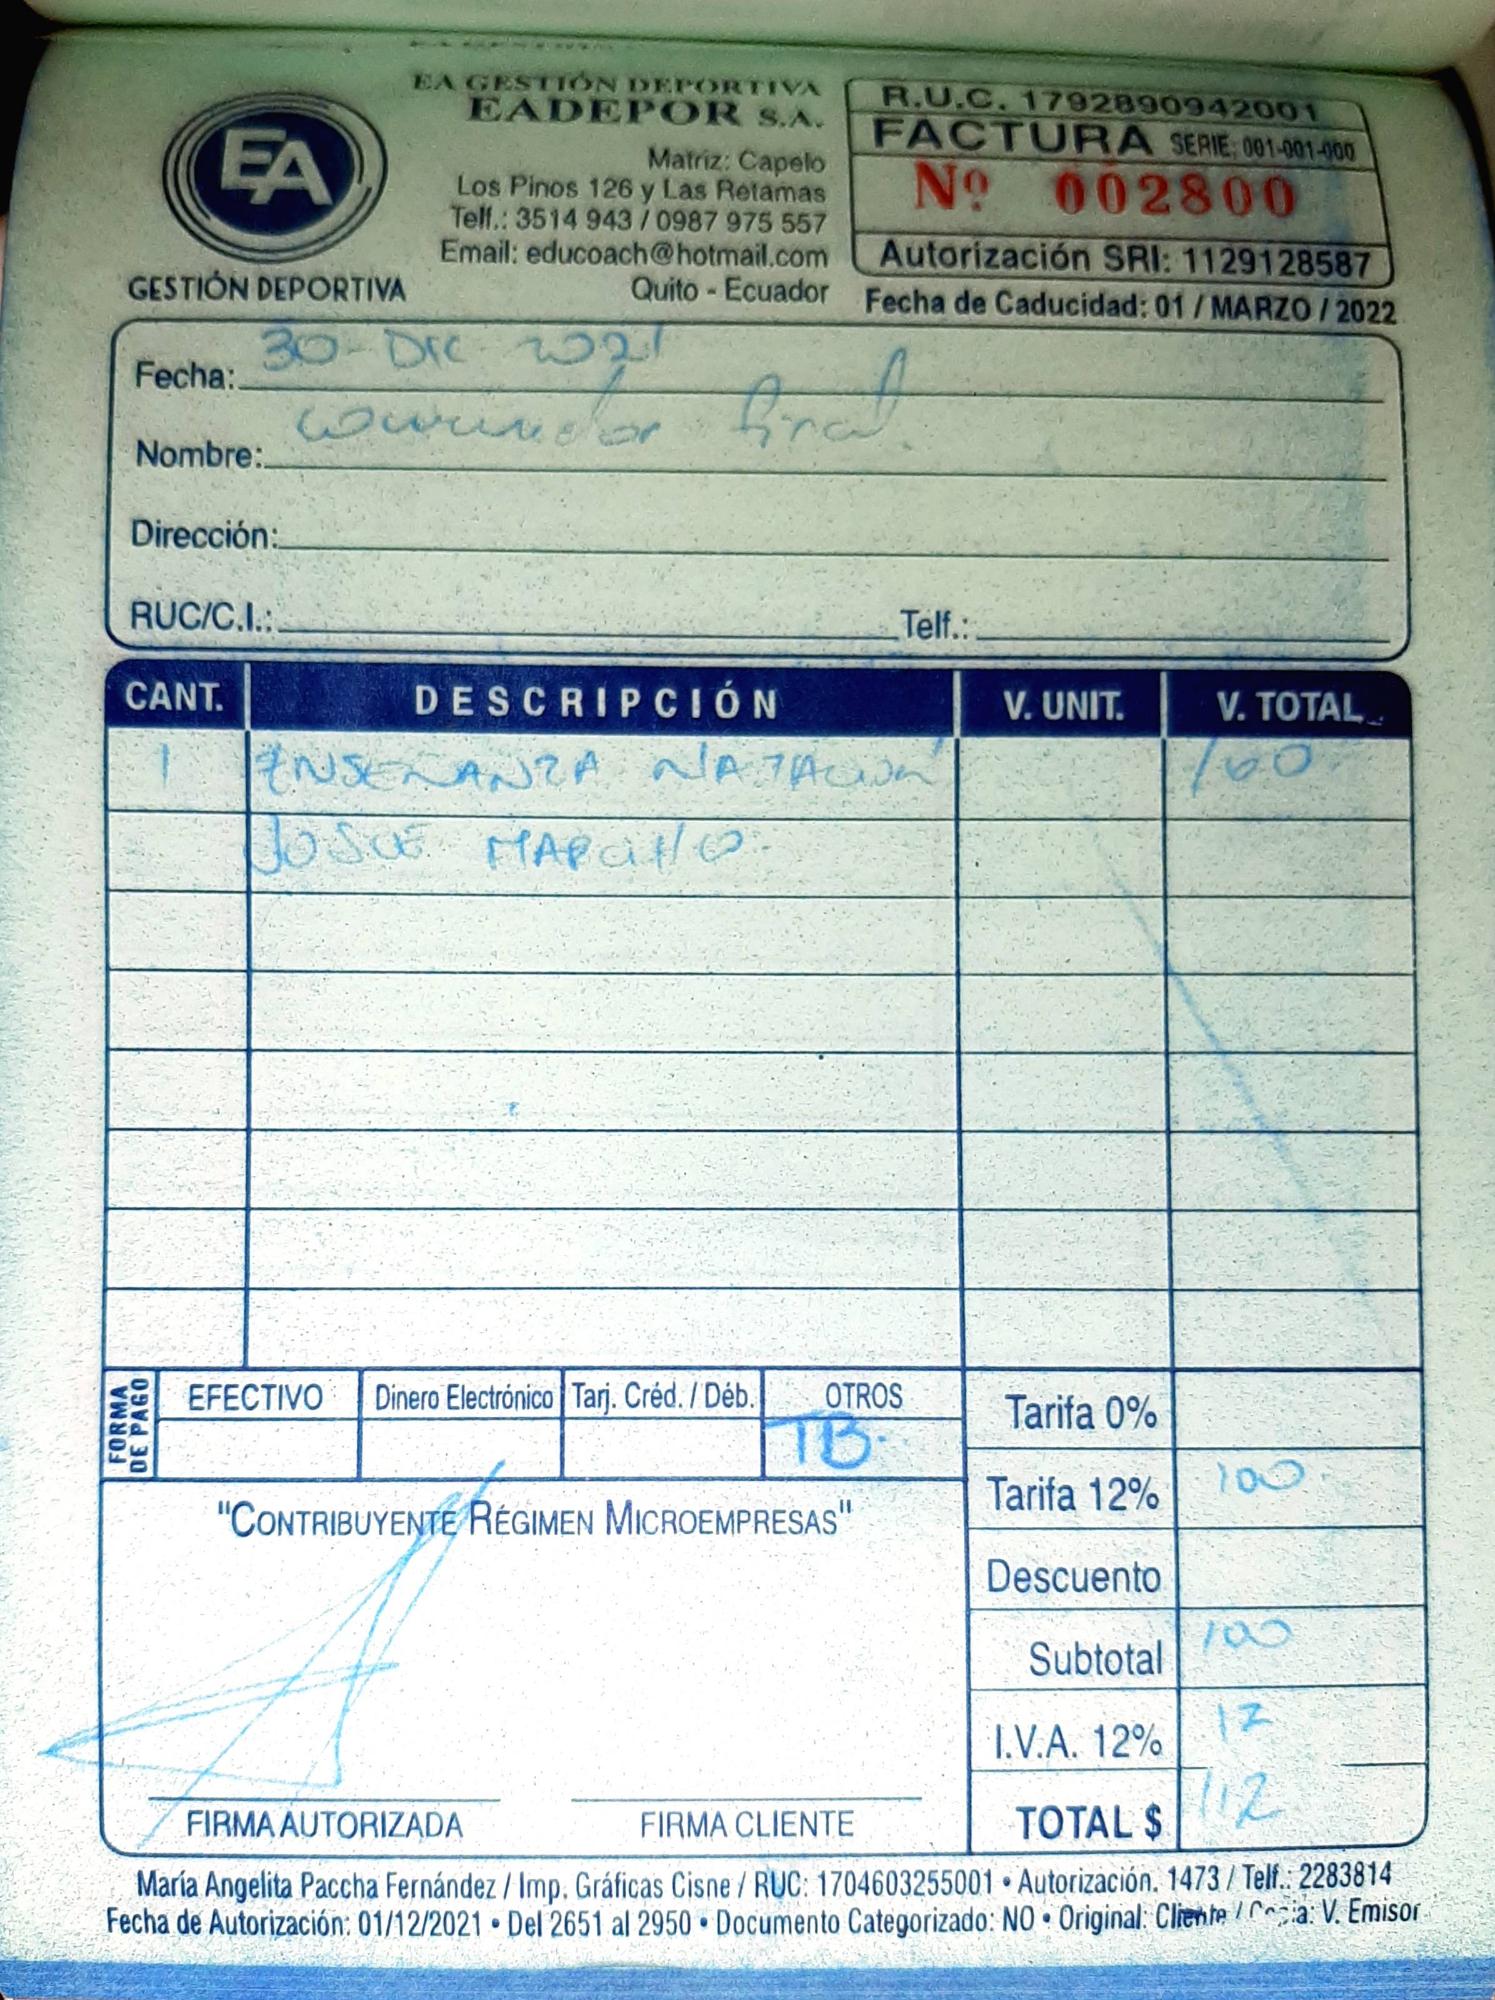 EA GESTIÓN DEPORTIVA
EADEPOR S.A.
EA
GESTIÓN DEPORTIVA
Matriz: Capelo
Los Pinos 126 y Las Retamas
Telf.: 3514 943 / 0987 975 557
Email: educoach@hotmail.com
Quito - Ecuador
R.U.C. 1792890942001
FACTURA SERIE: 001-001-000
Nº 002800
Autorización SRI: 1129128587
Fecha de Caducidad: 01 / MARZO / 2022
Fecha: 30 - DIC - 2021
Nombre: consumidor final.
Dirección:
RUC/C.I.: Telf.:
CANT. DESCRIPCIÓN V. UNIT. V. TOTAL
1 ENSEÑANZA NATACIÓN 100
JOSUE
FORMA DE PAGO
EFECTIVO Dinero Electrónico Tarj. Créd. / Déb. OTROS
TB.
Tarifa 0%
Tarifa 12% 100
Descuento
Subtotal 100
I.V.A. 12% 12
TOTAL $ 112
"CONTRIBUYENTE RÉGIMEN MICROEMPRESAS"
FIRMA AUTORIZADA FIRMA CLIENTE
María Angelita Paccha Fernández / Imp. Gráficas Cisne / RUC: 1704603255001 • Autorización. 1473 / Telf.: 2283814
Fecha de Autorización: 01/12/2021 • Del 2651 al 2950 • Documento Categorizado: NO • Original: Cliente / Copia: V. Emisor